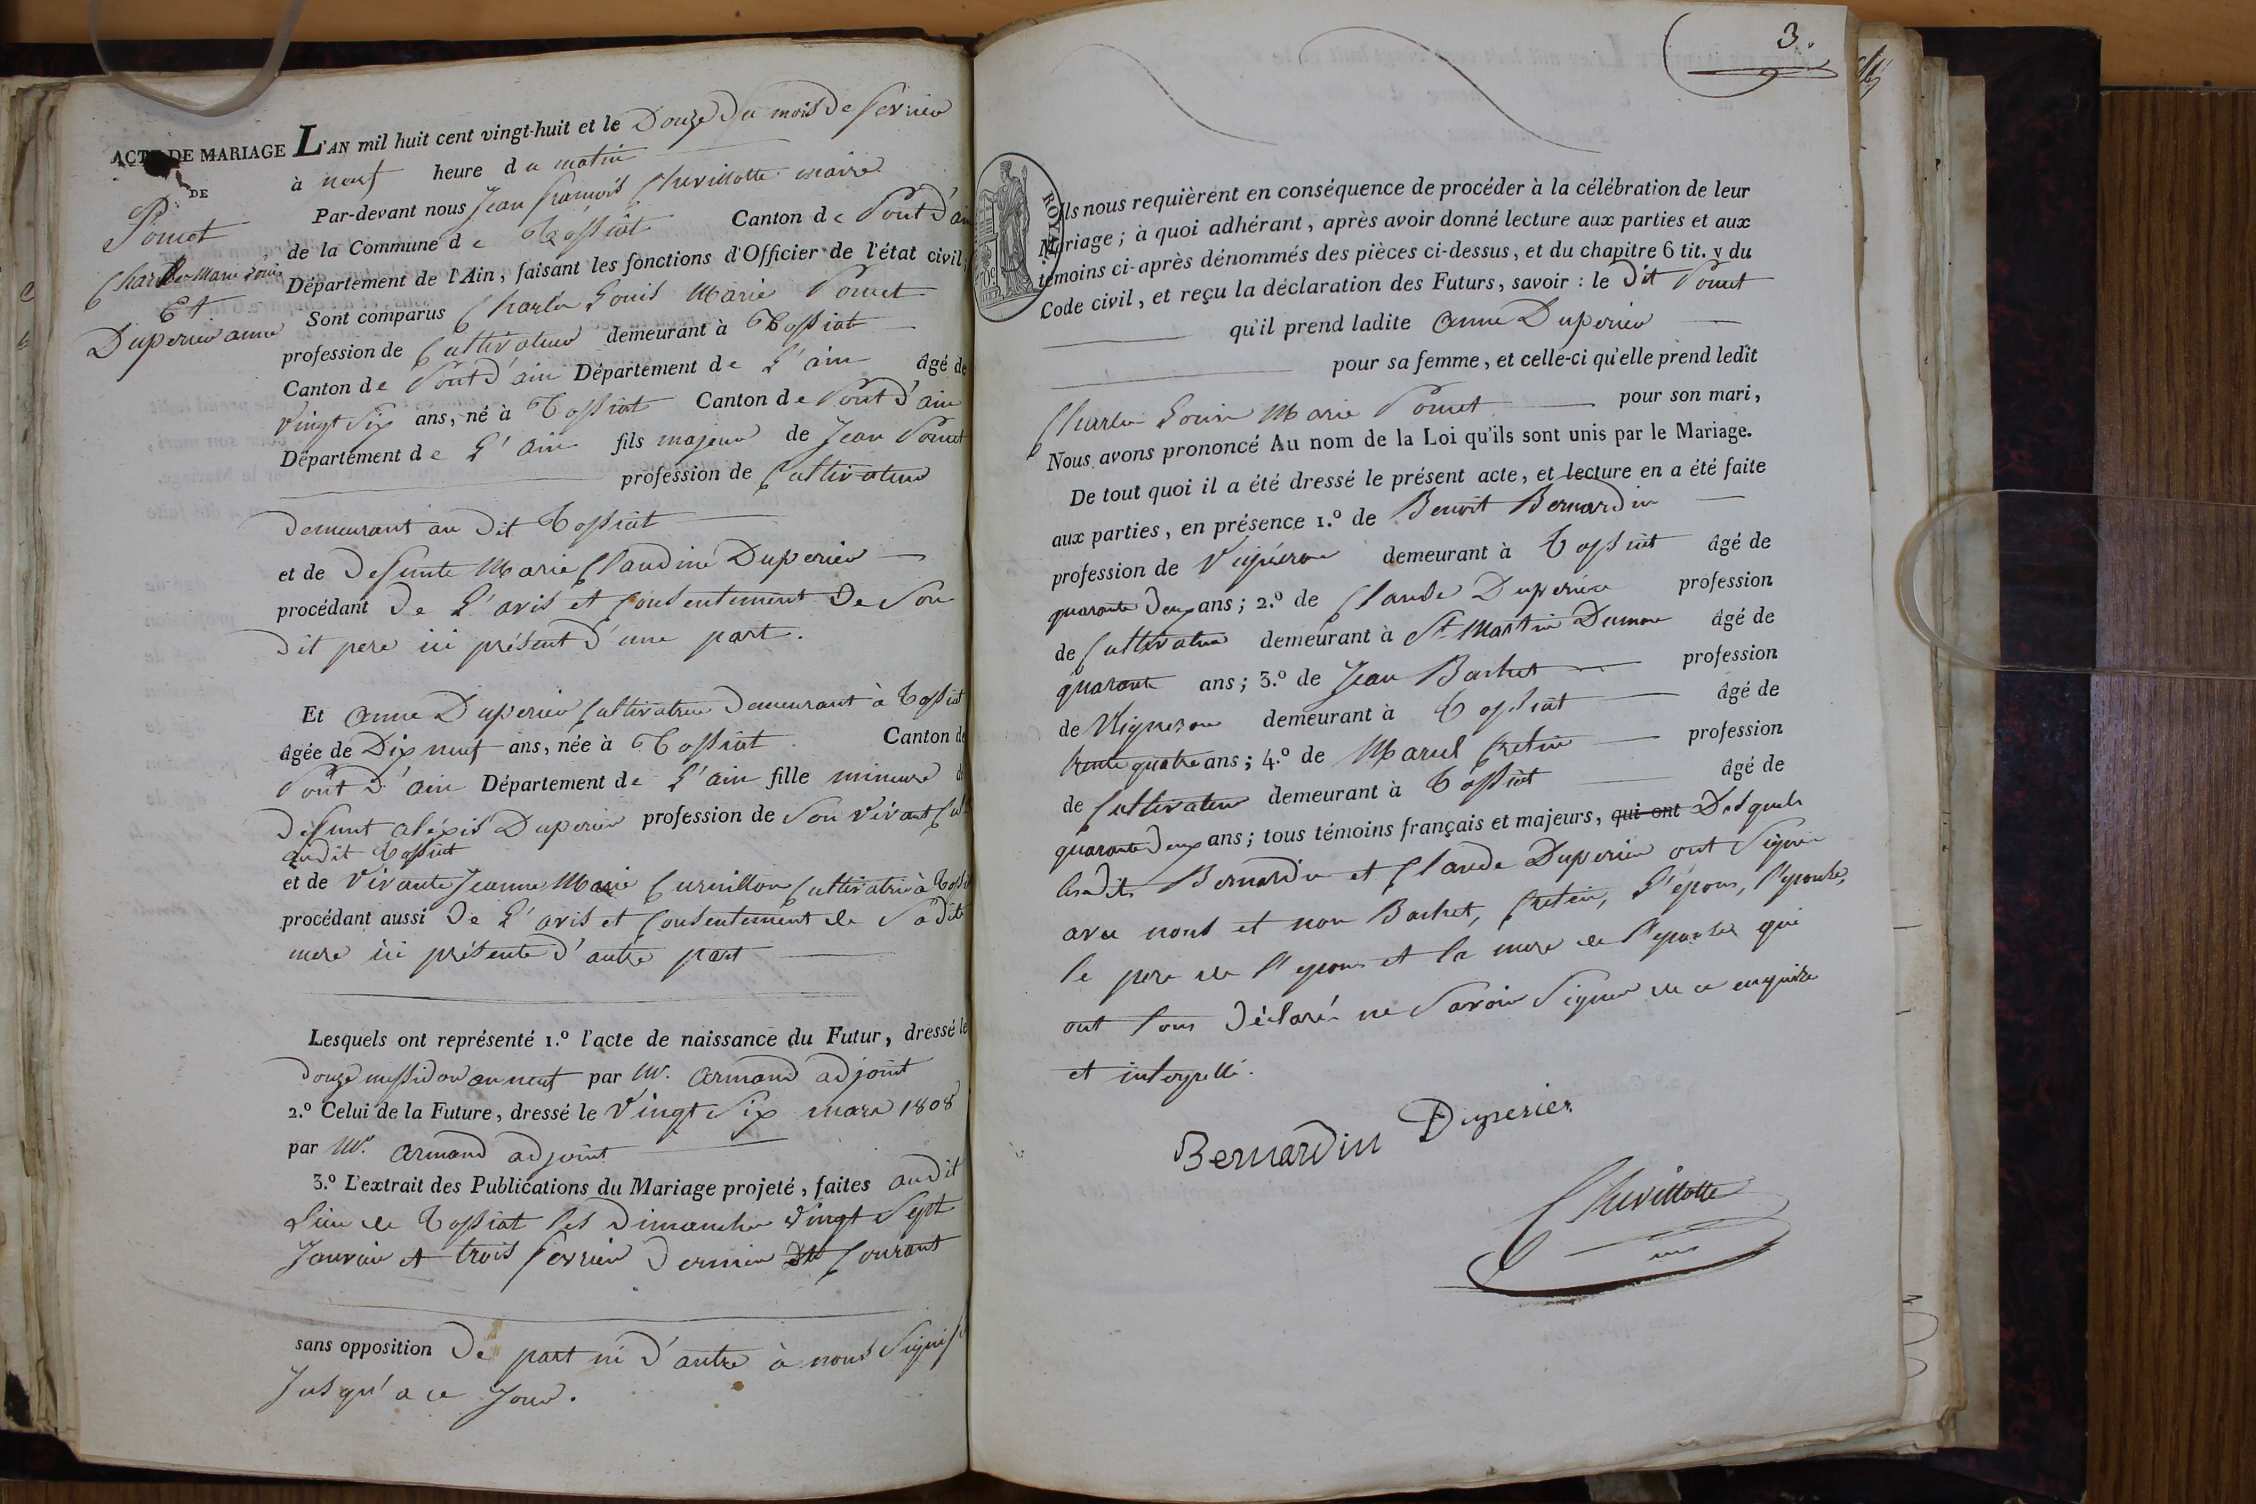 ACTE DE MARIAGE
DE
Pomet
Charles Marie Louis
Et
Duperier anne
L'AN mil huit cent vingt-huit et le Douze du mois de fevrier
à neuf heure du matin
Par-devant nous Jean francois Chevillotte maire
de la Commune de Tossiat Canton de Pont d'ain
Département de l'Ain, faisant les fonctions d'Officier de l'état civil,
Sont comparus Charles Louis Marie Pomet
profession de Cultivateur demeurant à Tossiat
Canton de Pont d'ain Département de L'ain âgé de
vingt six ans, né à Tossiat Canton de Pont d'ain
Département de L'ain fils majeur de Jean Pomet
profession de Cultivateur
demeurant au dit Tossiat
et de defunte Marie Claudine Duperier
procédant de L'avis et Consentement de Son
dit pere ici présent d'une part.
Et anne Duperier Cultivatrice demeurant à Tossiat
âgée de Dix neuf ans, née à Tossiat Canton de
Pont d'ain Département de L'ain fille mineure de
défunt aléxis Duperier profession de Son vivant
audit Tossiat
et de vivante Jeanne Marie Curnillon Cultivatrice à Tossiat
procédant aussi de L'avis et Consentement de Sadite
mere ici présente d'autre part
Lesquels ont représenté 1.º l'acte de naissance du Futur, dressé le
douze messidor an neuf par Mr. Armand adjoint
2.º Celui de la Future, dressé le vingt Six mars 1808
par Mr. Armand adjoint
3.º L'extrait des Publications du Mariage projeté, faites audit
Lieu de Tossiat les dimanches vingt Sept
Janvier et trois fevrier dernier et Courant
sans opposition de part ni d'autre à nous Signif
Jusqu'a ce Jour.
3.
ROYAL
Ils nous requièrent en conséquence de procéder à la célébration de leur
Mariage; à quoi adhérant, après avoir donné lecture aux parties et aux
témoins ci-après dénommés des pièces ci-dessus, et du chapitre 6 tit. v du
Code civil, et reçu la déclaration des Futurs, savoir : le dit Pomet
qu'il prend ladite Anne Duperier
pour sa femme, et celle-ci qu'elle prend ledit
Charles Louis Marie Pomet pour son mari,
Nous avons prononcé Au nom de la Loi qu'ils sont unis par le Mariage.
De tout quoi il a été dressé le présent acte, et lecture en a été faite
aux parties, en présence 1.º de Benoit Bernardin
profession de Vigneron demeurant à Tossiat âgé de
quarante deux ans; 2.º de Claude Duperier profession
de Cultivateur demeurant à St Martin Dumont âgé de
quarante ans; 3.º de Jean Bachet profession
de Vigneron demeurant à Tossiat âgé de
trente quatre ans; 4.º de Marcel Cretin profession
de Cultivateur demeurant à Tossiat âgé de
quarante deux ans; tous témoins français et majeurs, qui ont Desquels
lesdits Bernardin et Claude Duperier ont Signé
avec nous et non Bachet, Cretin, L'époux, l'epouse,
le pere de l'epoux et la mere de l'epouse qui
ont tous déclaré ne Savoir Signer de ce enquis
et interpellé.
Bernardin Duperier
Chevillotte